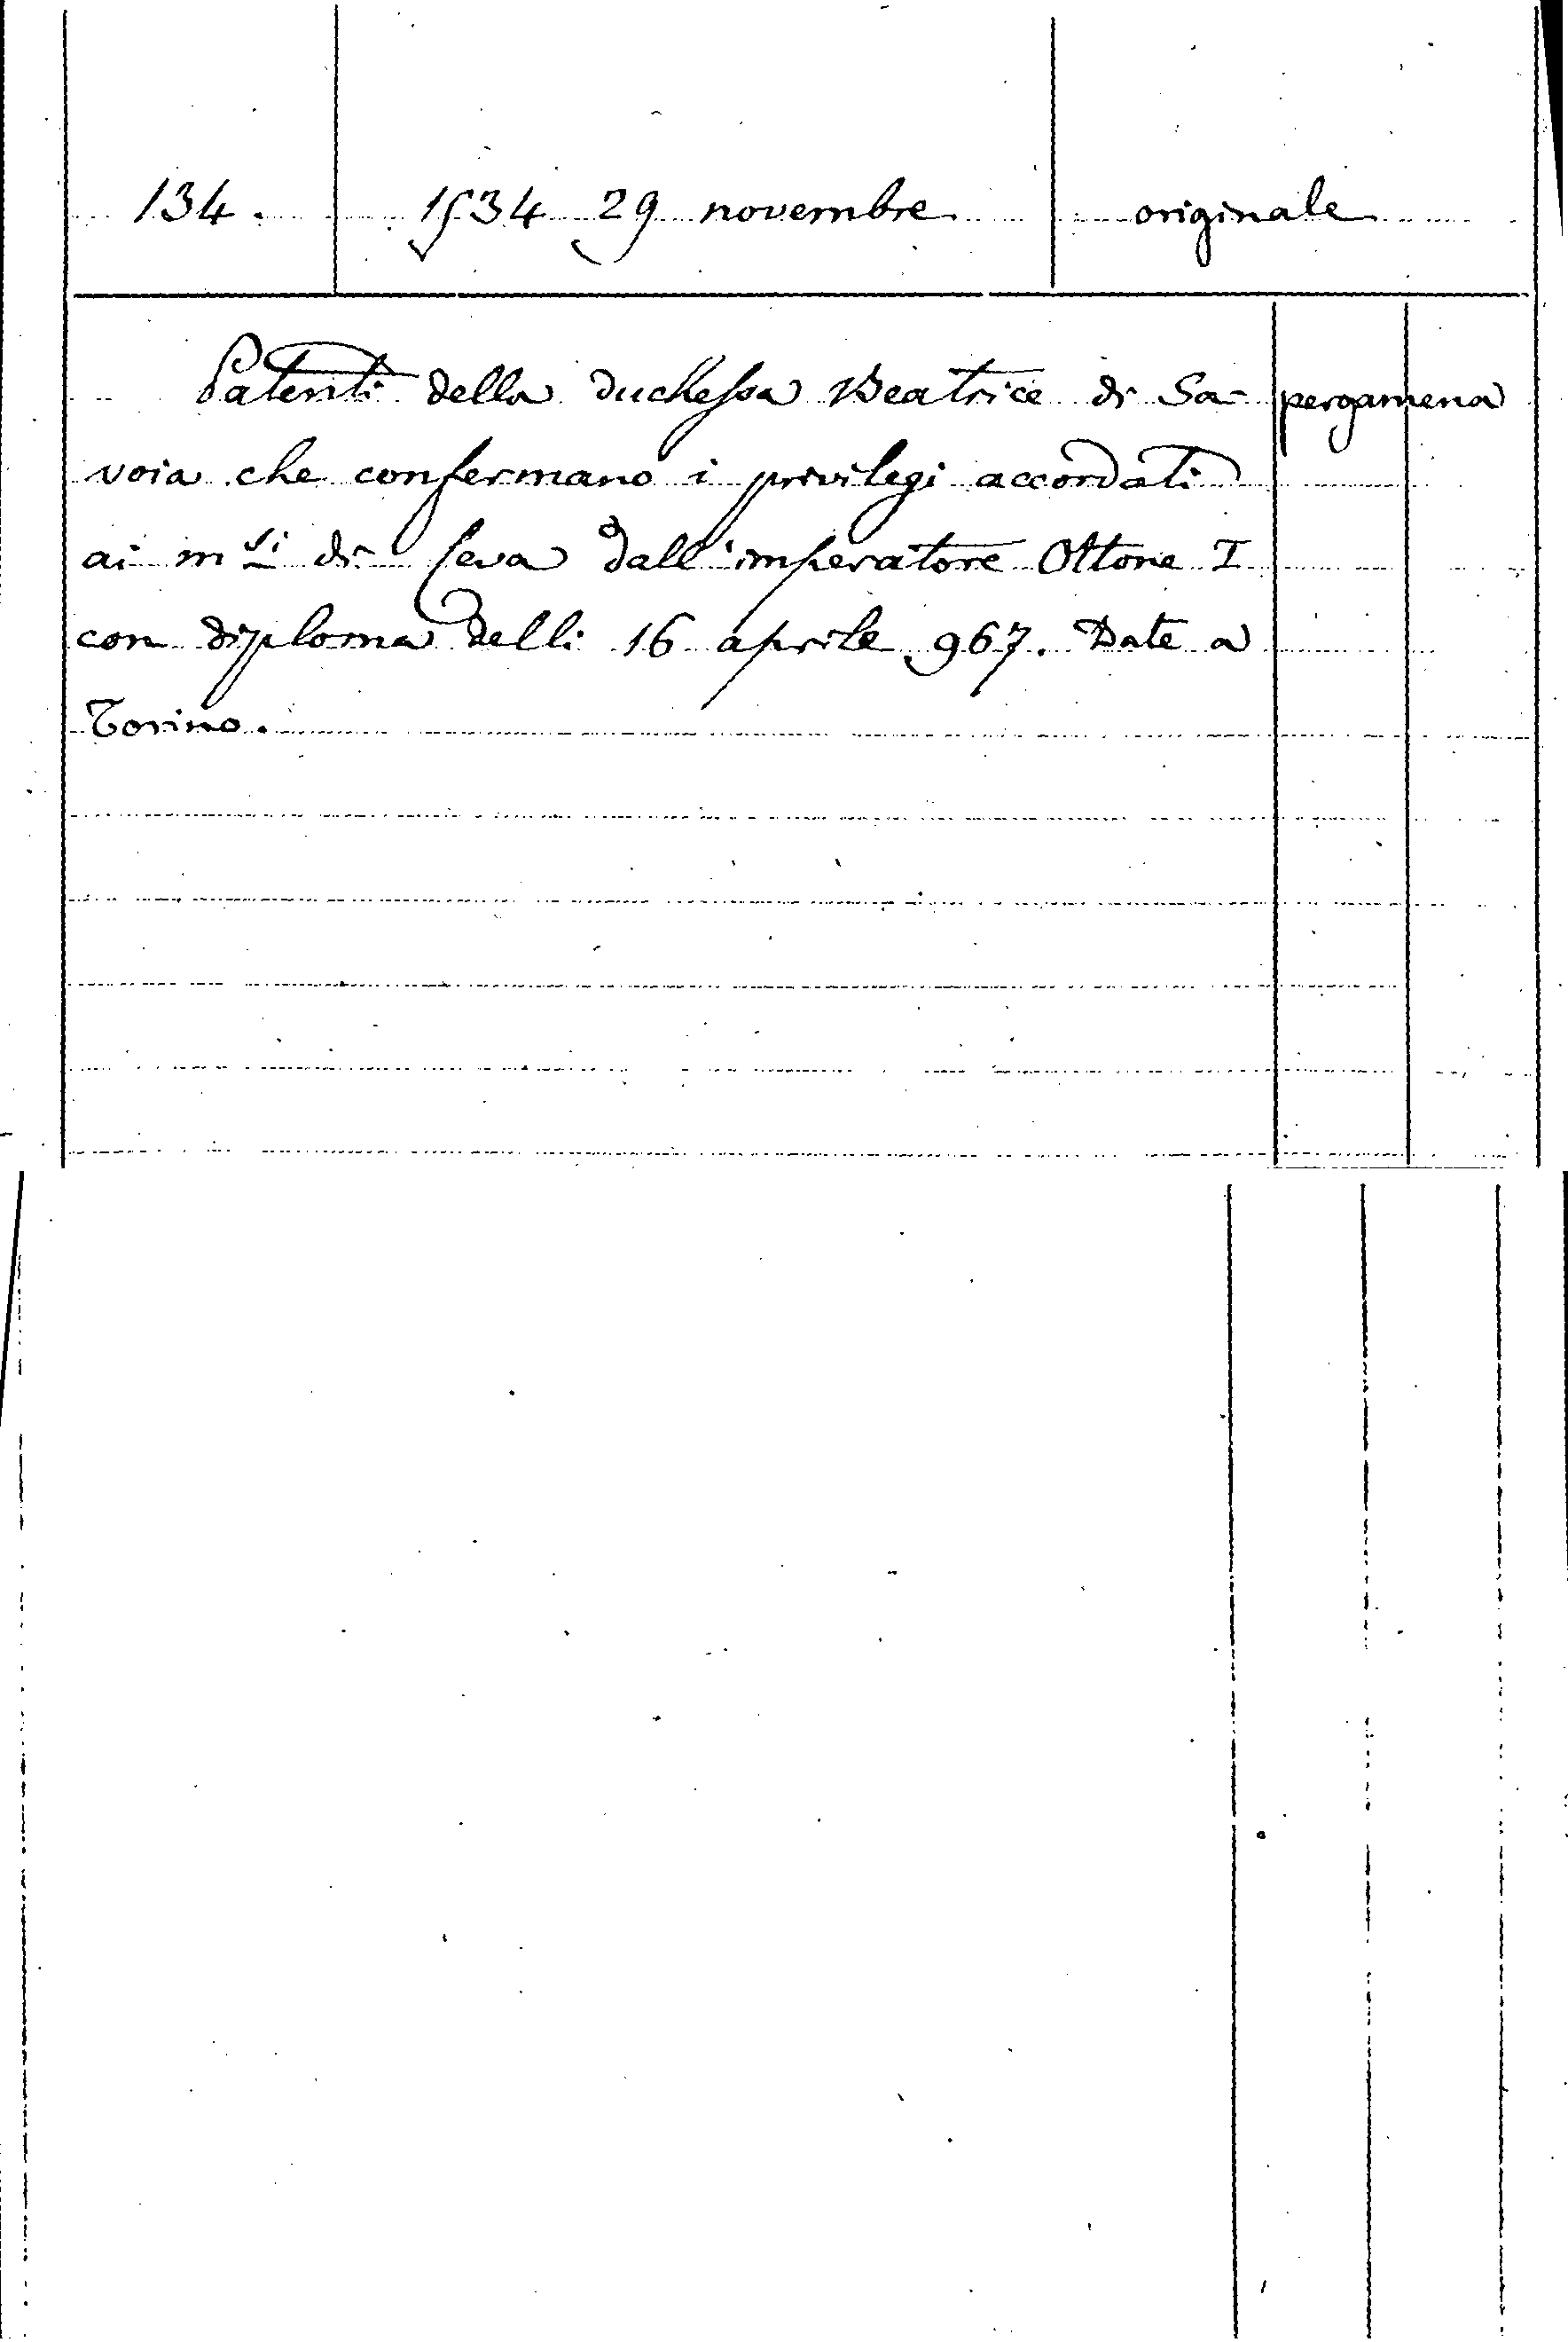 134. 1534 29 novembre originale
Patenti della duchessa Beatrice di Sa- pergamena
voia che confermano i privilegi accordati
ai m.si di Ceva dall'imperatore Ottone I
con diploma delli 16 aprile 967. Date a
Torino.